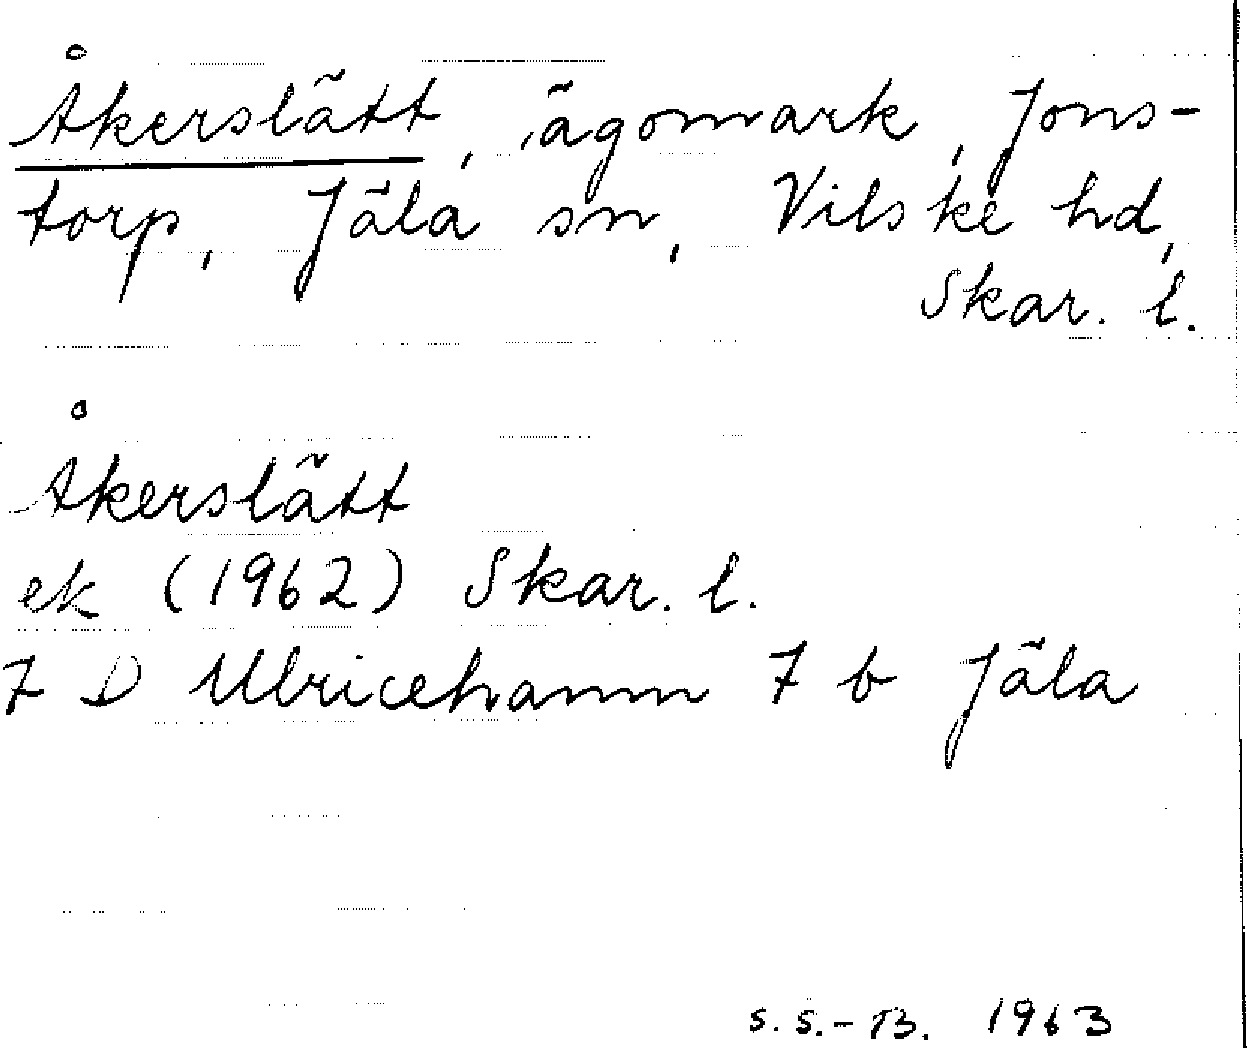 Åkerslätt, ägomark, Jons-
torp, Jäla sn, Vilske hd,
Skar. l.
Åkerslätt
ek (1962) Skar. l.
7 D Ulricehamn 7 b Jäla
S. S.-B. 1963